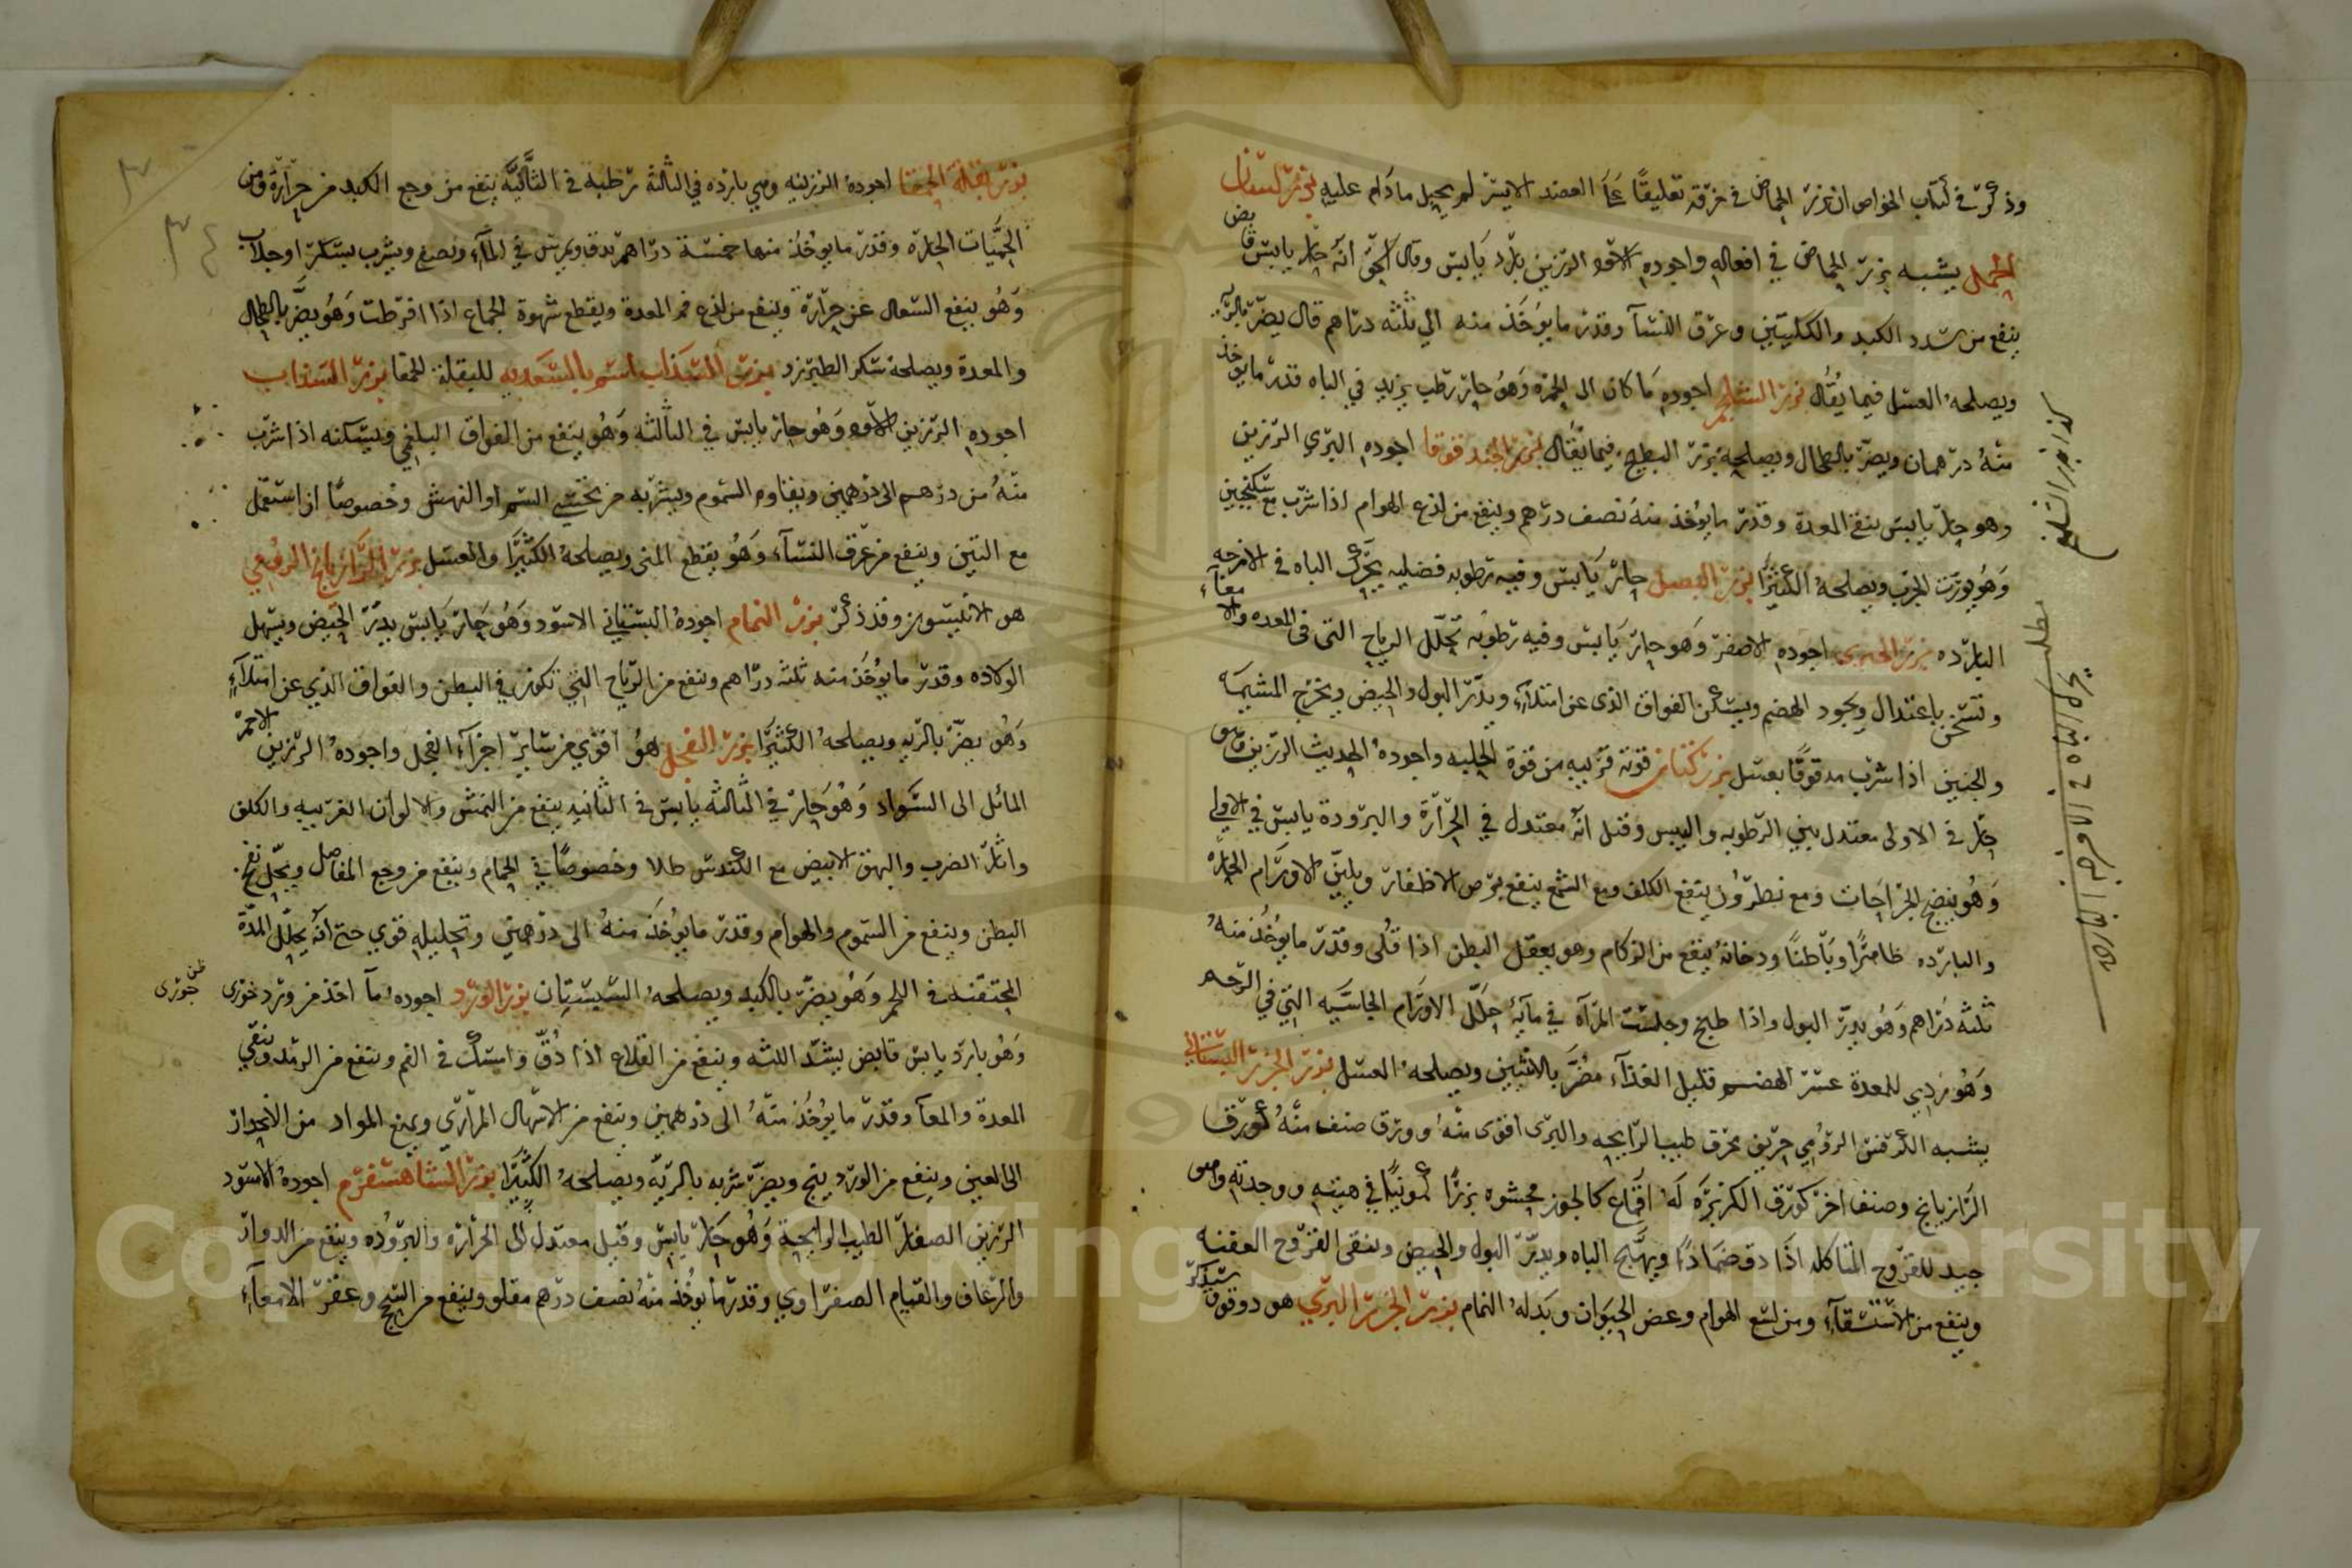 وذكر في كتاب الخواص ان بزر الحماض في خرقة تعليقًا على العضد الايسر لم يحبل مادام عليه بزر لسان
الحمل يشبه بزر الحماض في افعاله واجوده الاسود الرزين بارد يابس وقال اسحق انه حار يابس قابض
ينفع من سدد الكبد والكليتين وعرق النسآ وقدر ما يوخذ منه الى ثلثه دراهم قال يضر بالريه
ويصلحه العسل فيما يقال بزر الشلجم اجوده ما كان الى الحمره وهو حار رطب يزيد في الباه قدر ما يوخذ
منه درهمان ويضر بالطحال ويصلحه بزر البطيخ فيما يقال بزر الحندقوقا اجوده البري الرزين
وهو حار يابس ينفع المعدة وقدر ما يوخذ منه نصف درهم وينفع من لذع الهوام اذا شرب مع سكنجبين
وهو يورث الجرب ويصلحه الكثيرا بزر البصل حار يابس وفيه رطوبه فضليه يحرك الباه في الامزجه
البارده بزر اجوده الاصفر وهو حار يابس وفيه رطوبه تحلل الرياح التي في المعده والامعآء
وتسخن باعتدال ويجود الهضم ويسكن الفواق الذي عن امتلآء ويدر البول والحيض ويخرج المشيمه
والجنين اذا شرب مدقوقًا بعسل بزر كتان قوته قريبه من قوة الحلبه واجوده الحديث الرزين
حار في الاولى معتدل بين الرطوبه واليبس وقيل انه معتدل في الحرارة والبرودة يابس في الاولى
وهو ينضج الجراحات ومع نطرون ينفع الكلف ومع الشمع ينفع برص الاظفار ويلين الاورام الحاره
والبارده ظاهرًا وباطنًا ودخانه ينفع من الزكام وهو يعقل البطن اذا قلى وقدر ما يوخذ منه
ثلثه دراهم وهو يدر البول واذا طبخ وجلست المرآه في مآئه حلل الاورام الجاسيه التي في الرحم
وهو ردي للمعدة عسر الهضم قليل الغذآء مضر بالانثيين ويصلحه العسل بزر الجزر البستاني
يشبه الكرفس الرومي حريف محرق طيب الرايحه والبرى اقوى منه وورق صنف منه كورق
الرازيانج وصنف اخر كورق الكزبره له اقماع كالجوز محشوه بزرًا كمونيًا في هيئته ووجدته
جيد للقروح المتاكله اذا دق ضمادًا ويهيج الباه ويدر البول والحيض وينقى القروح العفنه
وينفع من الاستسقآء ومن لسع الهوام وعض الحيوان وبدله النمام بزر الجزر البري هو دوقوا
كذا بزر الشلجم
مطلب يحرك الباه في الامزجة الباردة
بزر بقلة الحمقا اجوده الرزينه وهي بارده في الثالثة رطبه في الثانيه ينفع من وجع الكبد من حرارة ومن
الحميات الحاره وقدر ما يوخذ منها خمسة دراهم يدق ويمرس في المآء ويصفى ويشرب بسكر او جلاب
وهو ينفع السعال عن حرارة وينفع من لذع فم المعدة ويقطع شهوة الجماع اذا افرطت وهو يضر بالطحال
والمعدة ويصلحه سكر الطبرزد للبقلة الحمقا بزر السذاب
اجوده الرزين الاسود وهو حار يابس في الثالثه وهو ينفع من الفواق البلغمي ويسكنه اذا شرب
منه من درهم الى درهمين ويقاوم السموم ويشربه من يخشى السم او النهش وخصوصًا اذا استعمل
مع التين وينفع من عرق النسآء وهو يقطع المنى ويصلحه الكثيرا والعسل بزر الرازيانج الرومي
هو الانيسون وقد ذكر بزر النمام اجوده البستاني الاسود وهو حار يابس يدر الحيض ويسهل
الولاده وقدر ما يوخذ منه ثلثه دراهم وينفع من الرياح التي تكون في البطن والفواق الذي عن امتلآء
وهو يضر بالريه ويصلحه الكثيرا بزر الفجل هو اقوي من ساير اجزآء الفجل واجوده الرزين الاحمر
المائل الى السواد وهو حار في الثالثه يابس في الثانيه ينفع من النمش والالوان الغريبه والكلف
واثار الضرب والبهق الابيض مع الكندس طلا وخصوصًا في الحمام وينفع من وجع المفاصل ويحل نفخ
البطن وينفع من السموم والهوام وقدر ما يوخذ منه الى درهمين وتحليله قوي حتى انه يحلل المدة
المحتقنه في اللحم وهو يضر بالكبد ويصلحه السبستان بزر الورد اجوده مآ اخذ من ورد خوزى
ظن جورى
وهو بارد يابس قابض يشد اللثه وينفع من القلاع اذا دق وامسك في الفم وينفع من الرمد وينقي
المعدة والمعآ وقدر ما يوخذ منه الى درهمين وينفع من الاسهال المراري ويمنع المواد من الانحدار
الى العين وينفع من الوردينج ويضر شربه بالريه ويصلحه الكثيرا بزر الشاهسفرم اجوده الاسود
الرزين الصغار الطيب الرايحة وهو حار يابس وقيل معتدل الى الحراره والبروده وينفع من الدوار
والرعاف والقيام الصفراوي وقدر ما يوخذ منه نصف درهم مقلو وينفع من السحج وعقر الامعآء
٣٤
Copyright © King Saud University